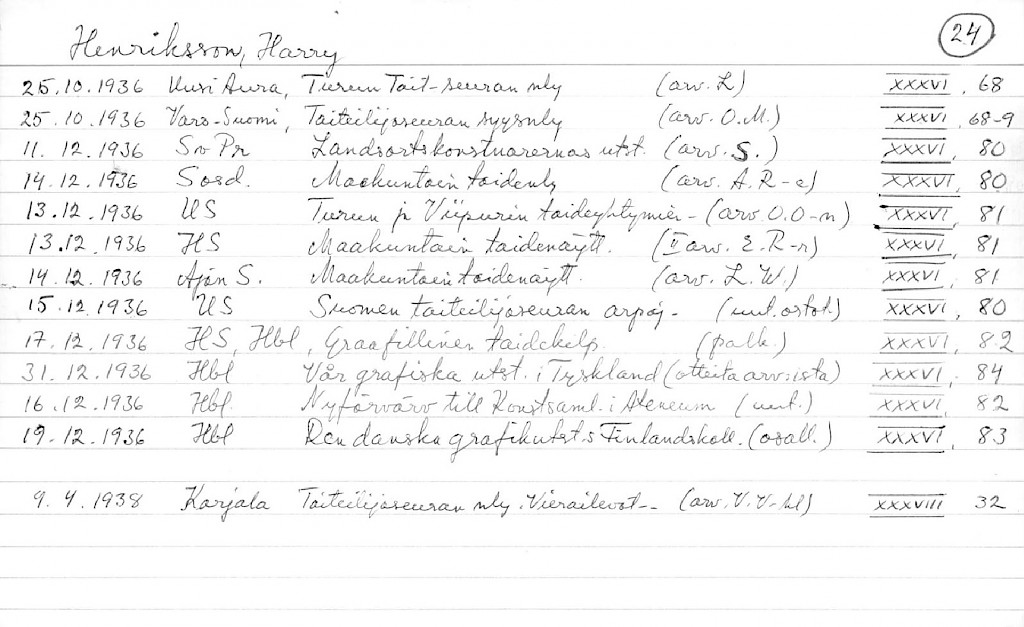 24
Henriksson, Harry
25.10.1936 Uusi Aura, Turun Tait-seuran nly (arv. L) XXXVI, 68
25.10.1936 Vars-Suomi, Taiteilijaseuran syysnly (arv. O.M.) XXXVI, 68-9
11.12.1936 Sv Pr Landsortskonstnärernas utst. (arv. S.) XXXVI, 80
14.12.1936 Sosd. Maakuntain taidenly (arv. A.R-a) XXXVI, 80
13.12.1936 US Turun ja Viipurin taideyhtymien - (arv. O.O-n) XXXVI, 81
13.12.1936 HS Maakuntain taidenäytt. (II arv. E.R-r) XXXVI, 81
14.12.1936 Ajan S. Maakuntain taidenäytt. (arv. L.W.) XXXVI, 81
15.12.1936 US Suomen taiteilijaseuran arpaj- (uut. ostot.) XXXVI, 80
17.12.1936 HS, Hbl, Graafillinen taidekilp. (palk.) XXXVI, 82
31.12.1936 Hbl Vår grafiska utst. i Tyskland (otteita arv:ista) XXXVI, 84
16.12.1936 Hbl. Nyförvärv till Konstsaml. i Ateneum (uut.) XXXVI, 82
19.12.1936 Hbl Den danska grafikutst:s Finlandskoll. (osall.) XXXVI, 83
9.4.1938 Karjala Taiteilijaseuran nly. Vierailevat-- (arv. V.V-hl) XXXVIII 32